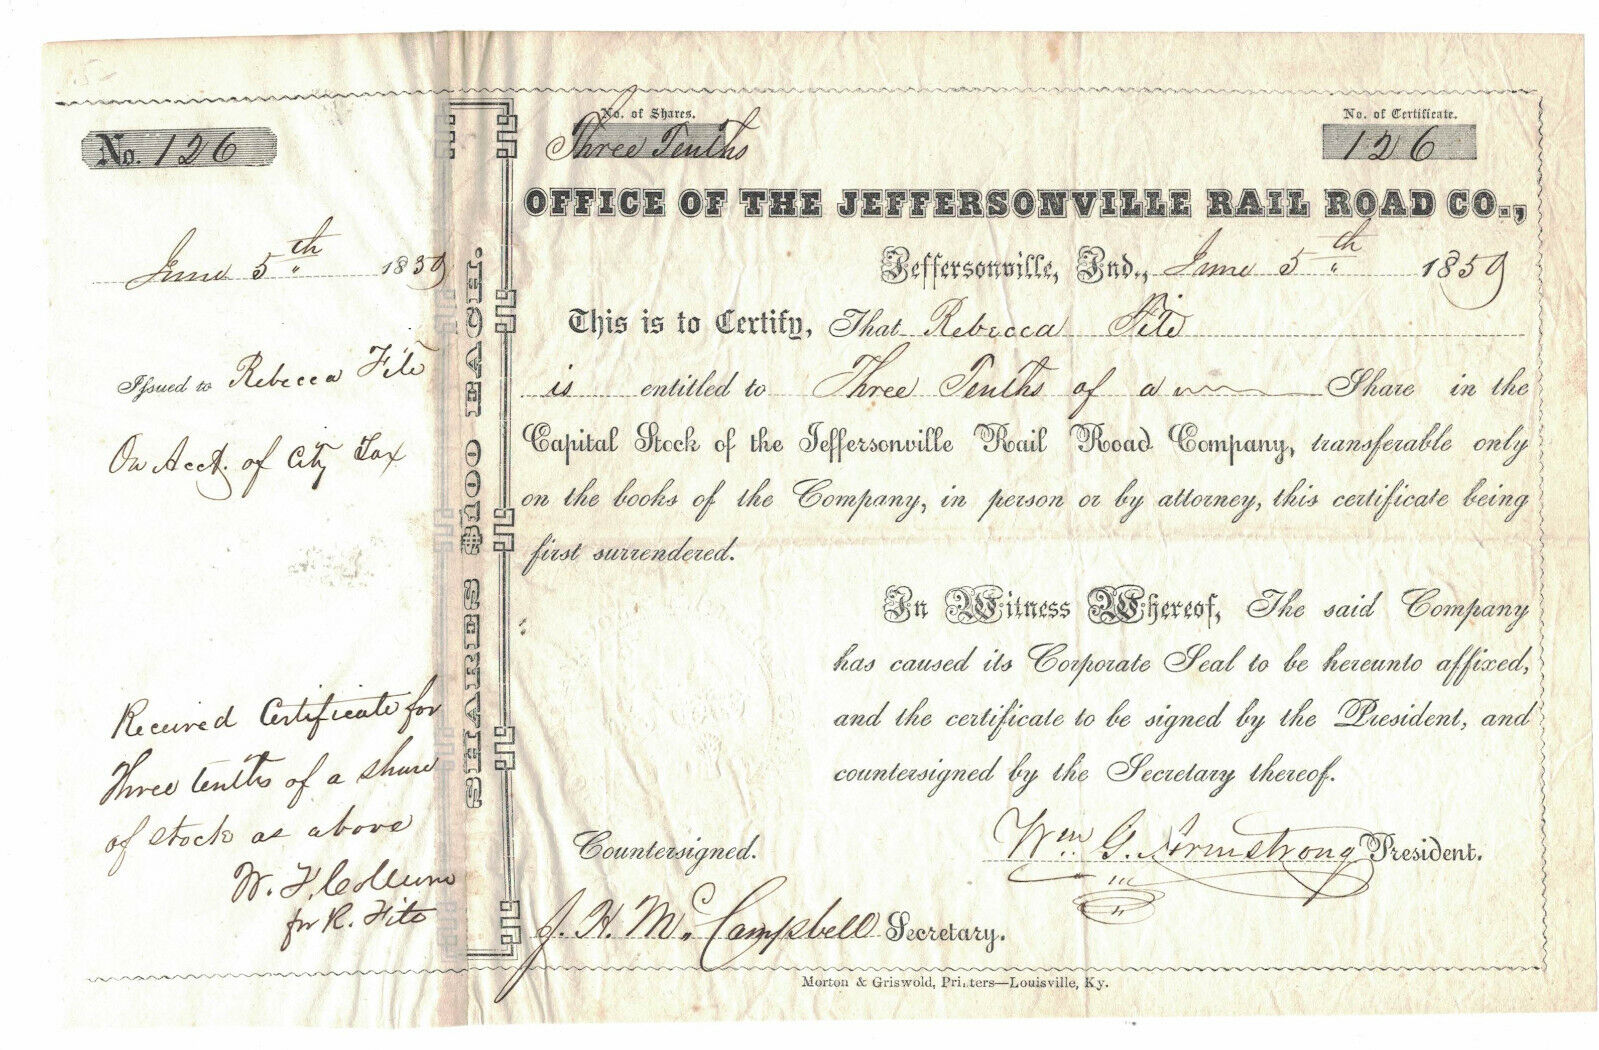 No. 126
June 5th 1859
Issued to Rebecca Fite
On Acct. of City Tax
Received Certificate for
Three tenths of a share
of stock as above
for R. Fite
SHARES $100 EACH.
No. of Shares.
Three Tenths
No. of Certificate.
126
OFFICE OF THE JEFFERSONVILLE RAIL ROAD CO.,
Jeffersonville, Ind., June 5th 1859
This is to Certify, That Rebecca Fite
is entitled to Three Tenths of a Share in the
Capital Stock of the Jeffersonville Rail Road Company, transferable only
on the books of the Company, in person or by attorney, this certificate being
first surrendered.
In Witness Whereof, The said Company
has caused its Corporate Seal to be hereunto affixed,
and the certificate to be signed by the President, and
countersigned by the Secretary thereof.
Wm. G. Armstrong President.
Countersigned.
J. H. McCampbell Secretary.
Morton & Griswold, Printers—Louisville, Ky.